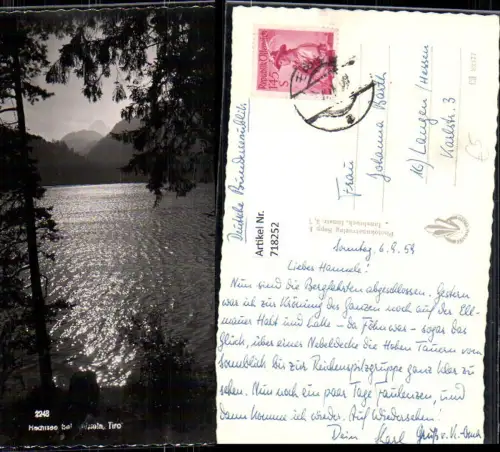 2248
Hechtsee bei Kufstein, Tirol
Republik Österreich
1.45
S
Deutsche Bundesrepublik
Frau
Johanna Barth
16) Langen/Hessen
Karlstr. 3
Artikel Nr.
718252
Sonntag, 6.9.53
Lieber Hannele!
Nun sind die Bergfahrten abgeschlossen. Gestern
war ich zur Krönung des Ganzen noch auf der Ell-
mauer Halt und hatte - da Föhn war - sogar das
Glück, über einer Nebeldecke die Hohen Tauern vom
Sonnblick bis zur Reichenspitzgruppe ganz klar zu
sehen. Nun noch ein paar Tage faulenzen, und
dann komme ich wieder. Auf Wiedersehen!
Dein Karl